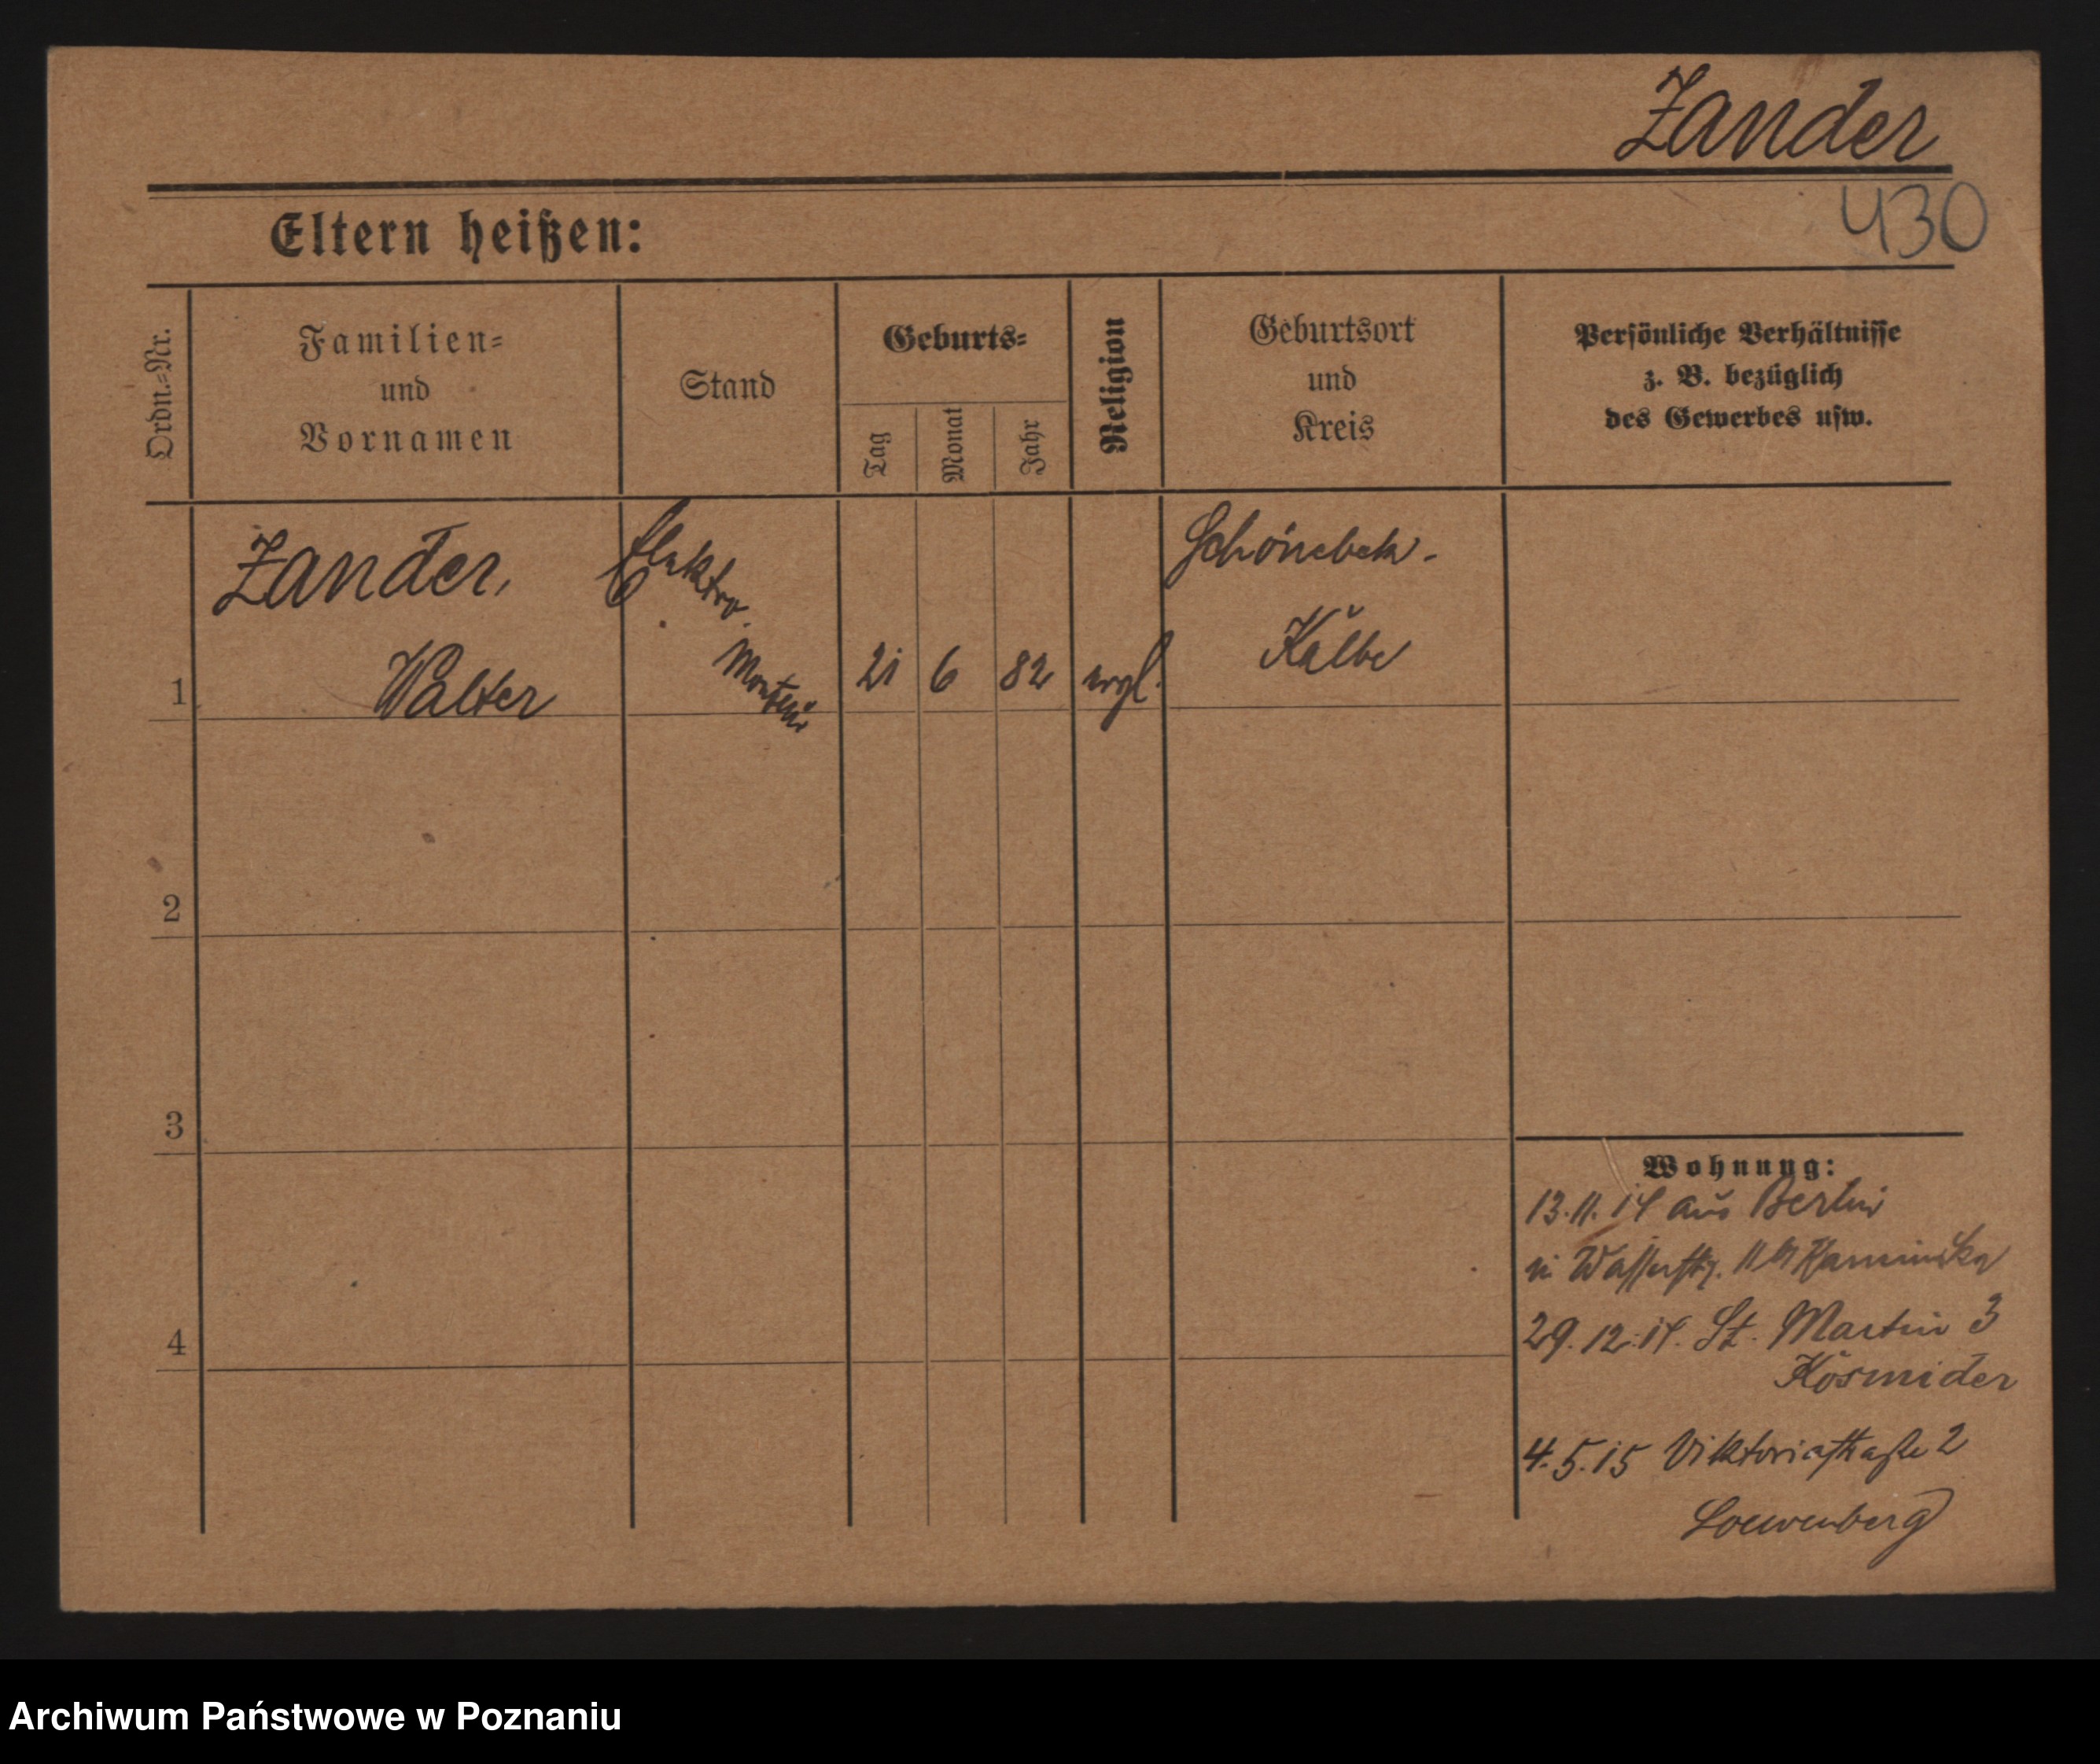 Zander
430
Eltern heißen:
Ordn.-Nr.
Familien-
und
Vornamen
Stand
Geburts-
Tag
Monat
Jahr
Religion
Geburtsort
und
Kreis
Persönliche Verhältnisse
z. B. bezüglich
des Gewerbes usw.
1
Zander,
Walter
Elektro.
Monteur
21
6
82
evgl.
Schönebek.
Kalbe
2
3
4
Wohnung:
13.11.14 aus Berlin
in Wasserstr. Kaminska
29.12.14. St. Martin 3
Kosmider
4.5.15 Viktoriastraße 2
Loewenberg
Archiwum Państwowe w Poznaniu